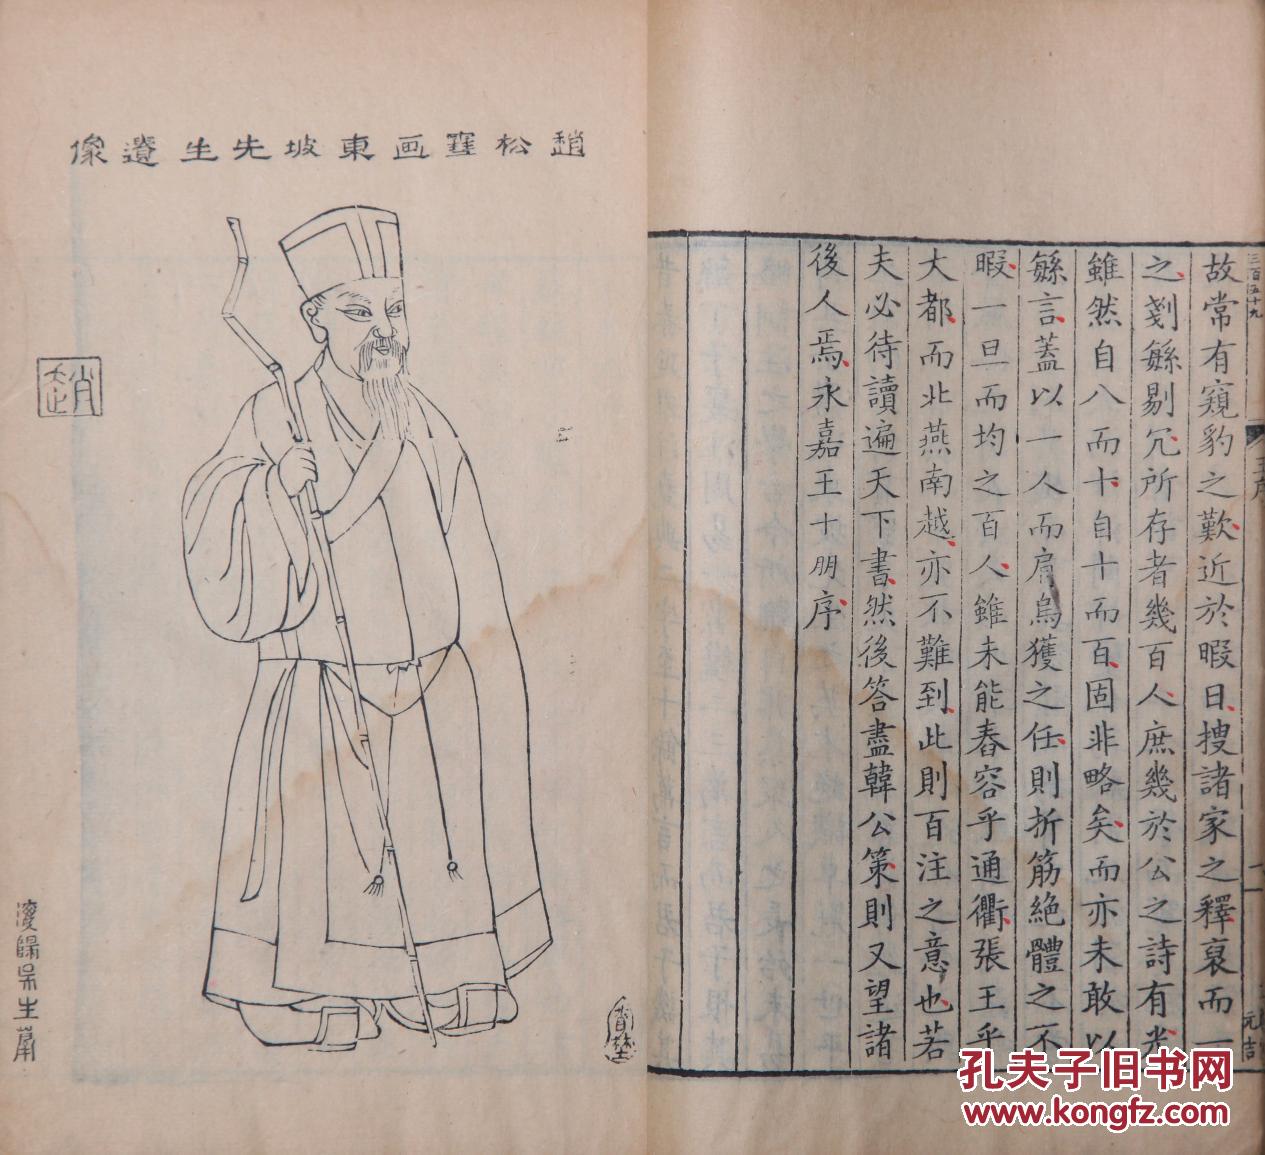 故常有窺豹之歎近於暇日搜諸家之釋裒而一
之剗繇剔冗所存者幾百人庶幾於公之詩有光
雖然自八而十自十而百固非略矣而亦未敢以
繇言蓋以一人而肩烏獲之任則折筋絶體之不
暇一旦而均之百人雖未能舂容乎通衢張王乎
大都而北燕南越亦不難到此則百注之意也若
夫必待讀遍天下書然後答盡韓公策則又望諸
後人焉永嘉王十朋序
三百五十九
元吉
趙松雪画東坡先生遺像
趙
孔夫子旧书网
www.kongfz.com